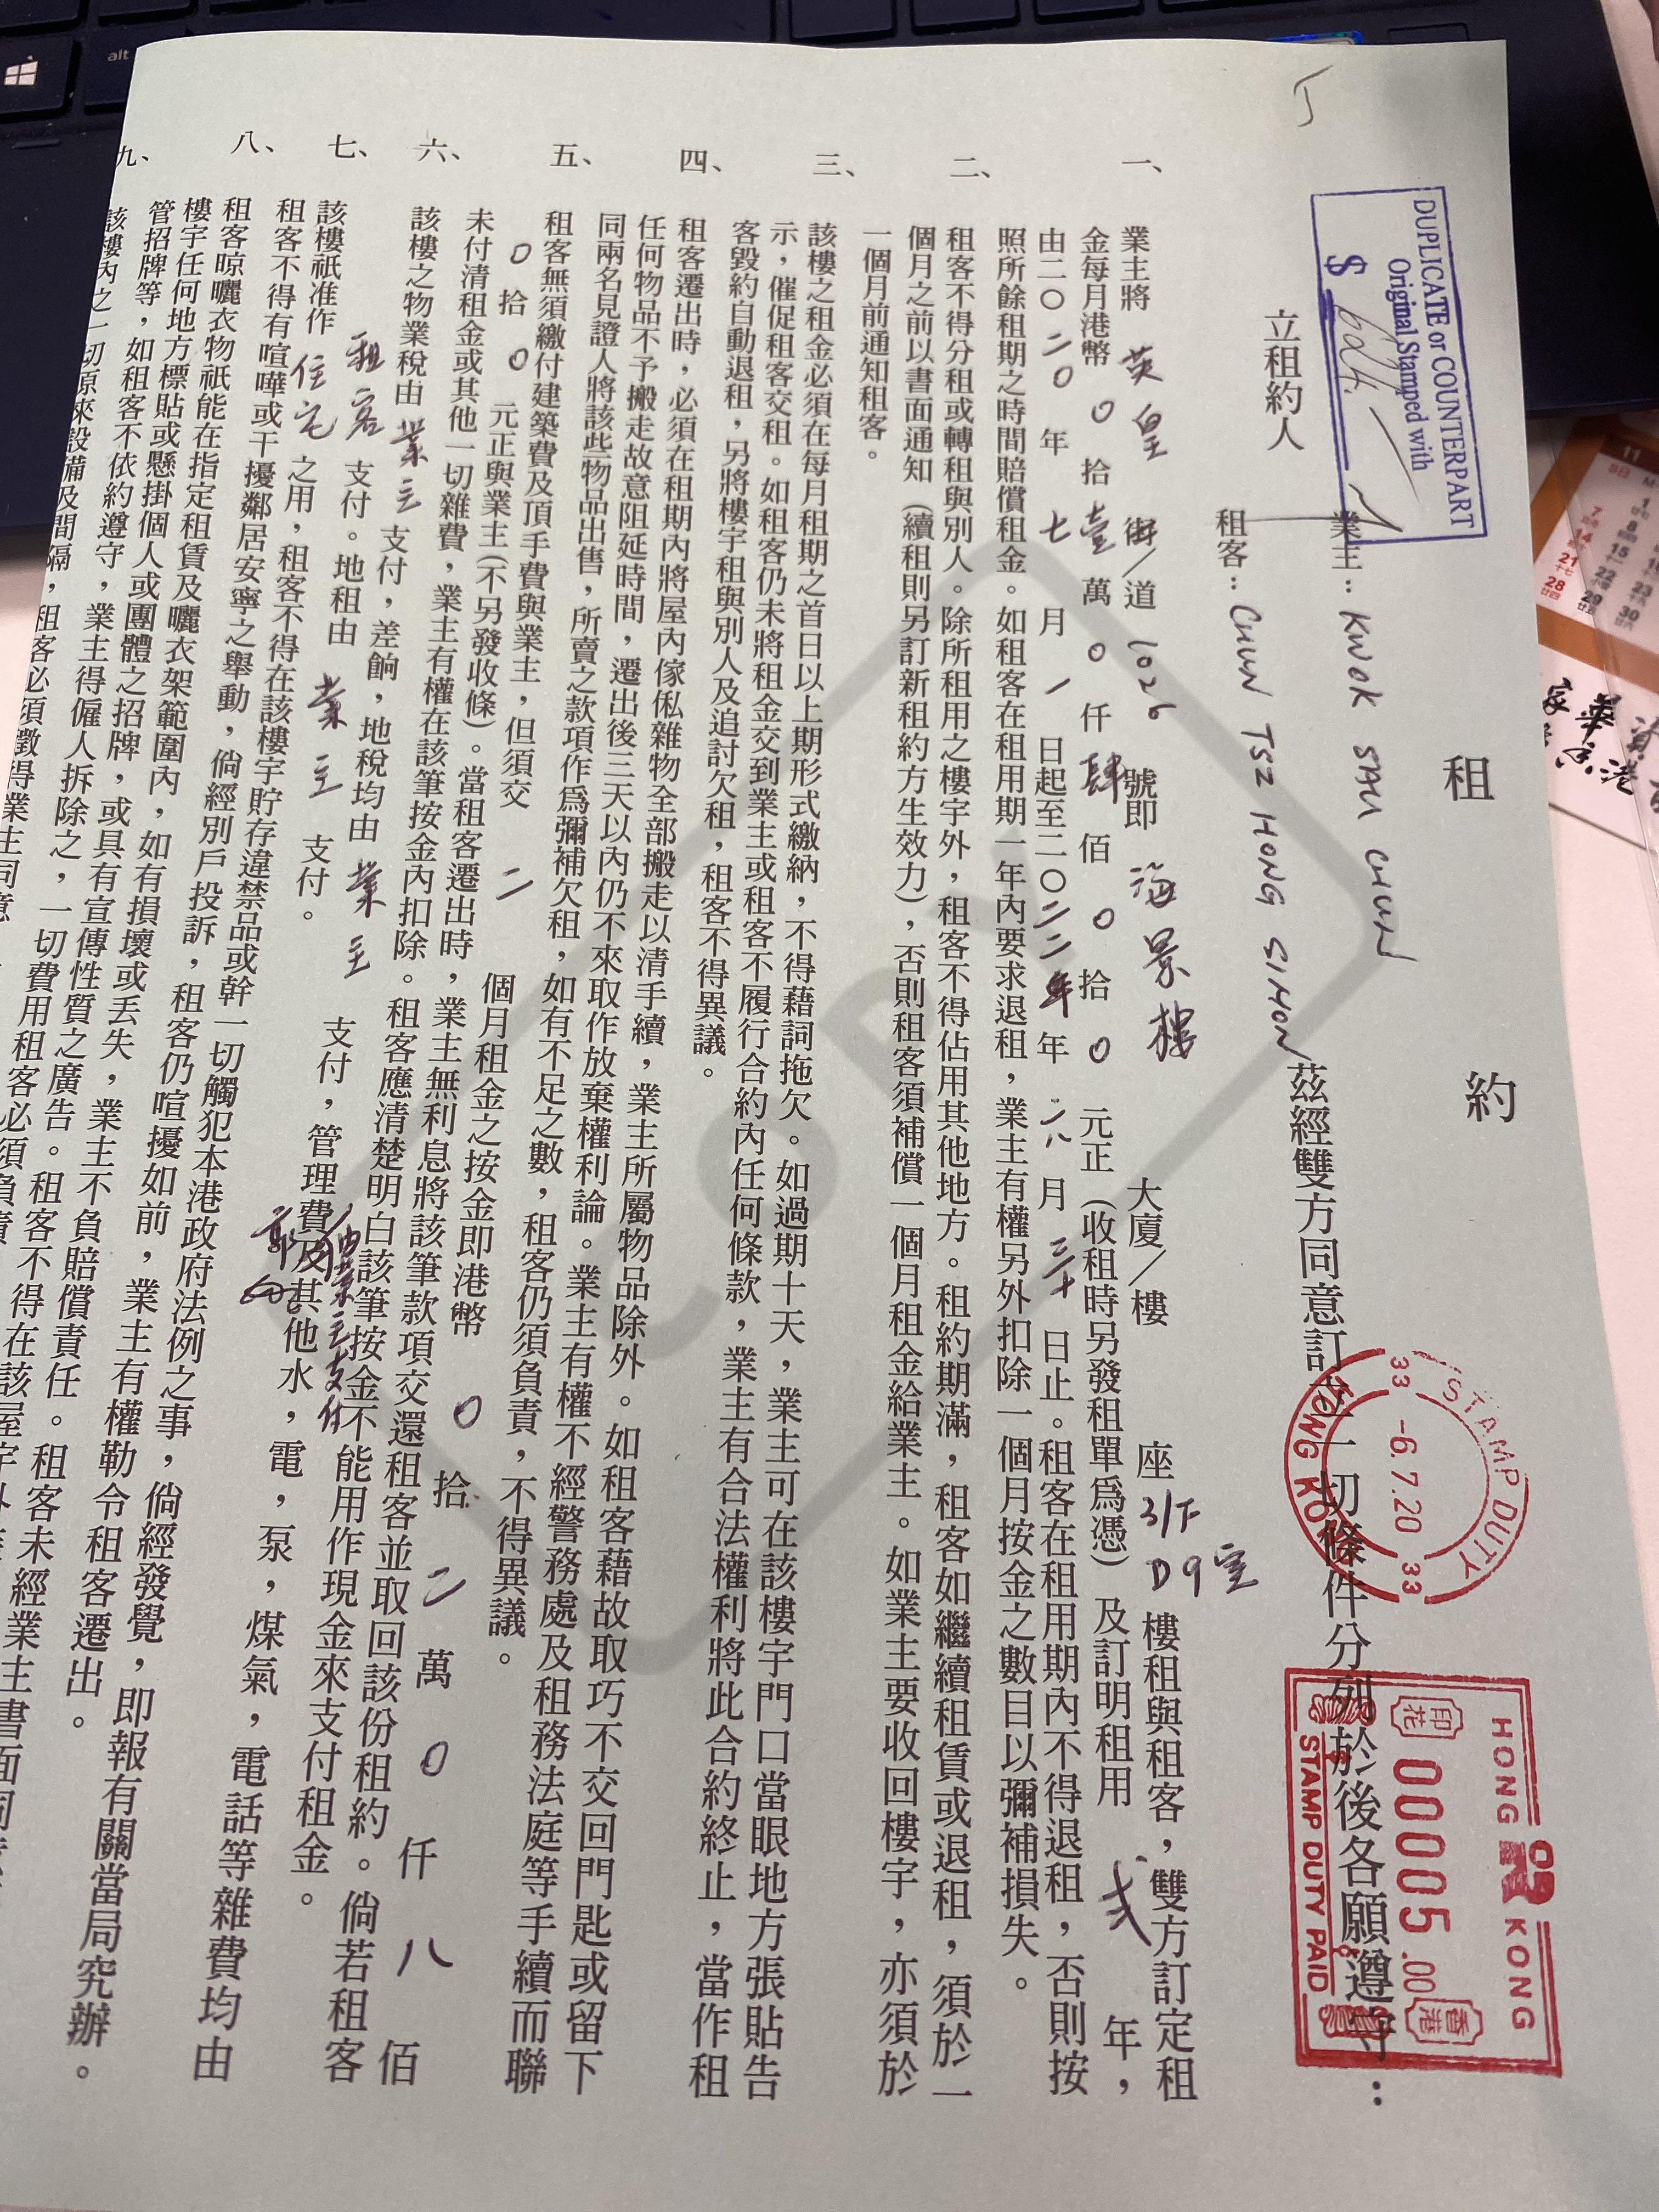 租約
DUPLICATE or COUNTERPART
Original Stamped with
$
立租約人
業主：KWOK SAU CHUN
租客：CHUN TSZ HONG SIMON
茲經雙方同意訂立一切條件分列於後各願遵守：
STAMP DUTY
33 -6.7.20 33
HONG KONG
HONG KONG
印花 00005.00 香港
STAMP DUTY PAID
一、業主將 英皇 街／道 1026 號即 海景樓 大廈／樓 座 3/F D9室 樓租與租客，雙方訂定租
金每月港幣 0 拾 壹 萬 0 仟 肆 佰 0 拾 0 元正（收租時另發租單爲憑）及訂明租用 弍 年，
由二〇二0年 七 月 1 日起至二〇二二年年 六 月 三十 日止。租客在租用期內不得退租，否則按
照所餘租期之時間賠償租金。如租客在租用期一年內要求退租，業主有權另外扣除一個月按金之數目以彌補損失。
二、租客不得分租或轉租與別人。除所租用之樓宇外，租客不得佔用其他地方。租約期滿，租客如繼續租賃或退租，須於一
個月之前以書面通知（續租則另訂新租約方生效力），否則租客須補償一個月租金給業主。如業主要收回樓宇，亦須於
一個月前通知租客。
三、該樓之租金必須在每月租期之首日以上期形式繳納，不得藉詞拖欠。如過期十天，業主可在該樓宇門口當眼地方張貼告
示，催促租客交租。如租客仍未將租金交到業主或租客不履行合約內任何條款，業主有合法權利將此合約終止，當作租
客毀約自動退租，另將樓宇租與別人及追討欠租，租客不得異議。
四、租客遷出時，必須在租期內將屋內傢俬雜物全部搬走以清手續，業主所屬物品除外。如租客藉故取巧不交回門匙或留下
任何物品不予搬走故意阻延時間，遷出後三天以內仍不來取作放棄權利論。業主有權不經警務處及租務法庭等手續而聯
同兩名見證人將該些物品出售，所賣之款項作爲彌補欠租，如有不足之數，租客仍須負責，不得異議。
五、租客無須繳付建築費及頂手費與業主，但須交 二 個月租金之按金即港幣 0 拾 2 萬 0 仟 八 佰
0 拾 0 元正與業主（不另發收條）。當租客遷出時，業主無利息將該筆款項交還租客並取回該份租約。倘若租客
未付清租金或其他一切雜費，業主有權在該筆按金內扣除。租客應清楚明白該筆按金不能用作現金來支付租金。
六、該樓之物業稅由 業主 支付，差餉，地稅均由 業主 支付，管理費及其他水，電，泵，煤氣，電話等雜費均由
租客 支付。地租由 業主 支付。
由業主支付
七、該樓祇准作 住宅 之用，租客不得在該樓宇貯存違禁品或幹一切觸犯本港政府法例之事，倘經發覺，即報有關當局究辦。
租客不得有喧嘩或干擾鄰居安寧之舉動，倘經別戶投訴，租客仍喧擾如前，業主有權勒令租客遷出。
八、租客晾曬衣物祇能在指定租賃及曬衣架範圍內，如有損壞或丟失，業主不負賠償責任。租客未經業主書面同意
樓宇任何地方標貼或懸掛個人或團體之招牌，或具有宣傳性質之廣告。租客不得在該屋宇外
管招牌等，如租客不依約遵守，業主得僱人拆除之，一切費用租客必須負責
九、該樓內之一切原來設備及間隔，租客必須徵得業主同意
COPY
alt
11